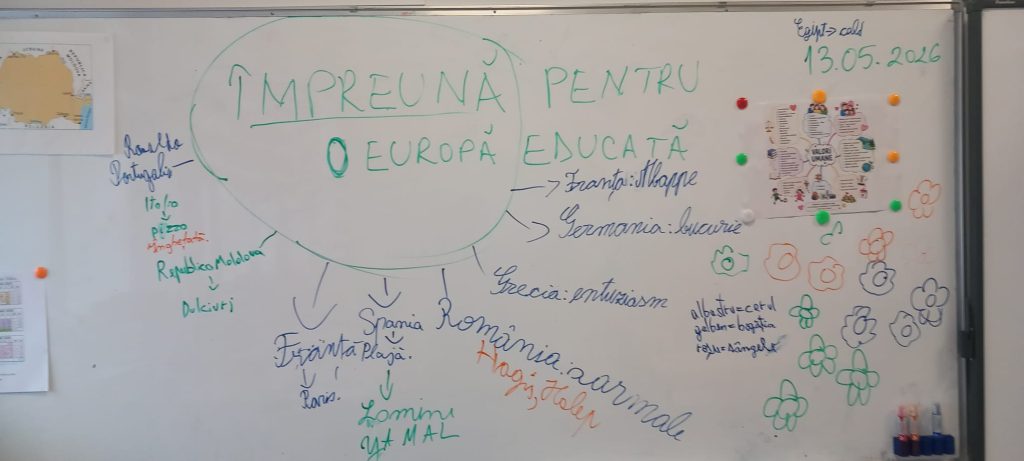 Egipt → cald
13.05.2026
ÎMPREUNĂ PENTRU
O EUROPĂ EDUCATĂ
VALORI
UMANE
Ronaldo
Portugalia
pizza
Înghețată.
Republica Moldova
Dulciuri
Franța: Mbappe
Germania: bucurie
Grecia: entuziasm
România: sarmale
Hagi, Halep
Spania
Plajă.
Lamine
YAMAL
Franță
Paris.
albastru=cerul
galben=bogăția
roșu=sângele